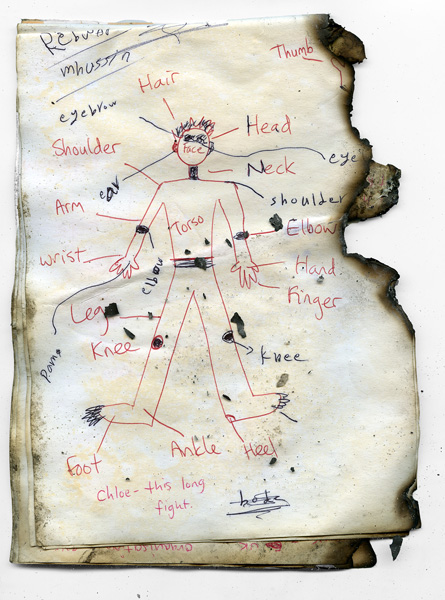 mhussin
Thumb
Hair
eyebrow
Head
Shoulder
Face
eye
Neck
ear
shoulder
Arm
Torso
Elbow
wrist
elbow
Hand
Finger
Leg
Knee
Knee
Foot
Ankle
Heel
Chloe - this long
fight.